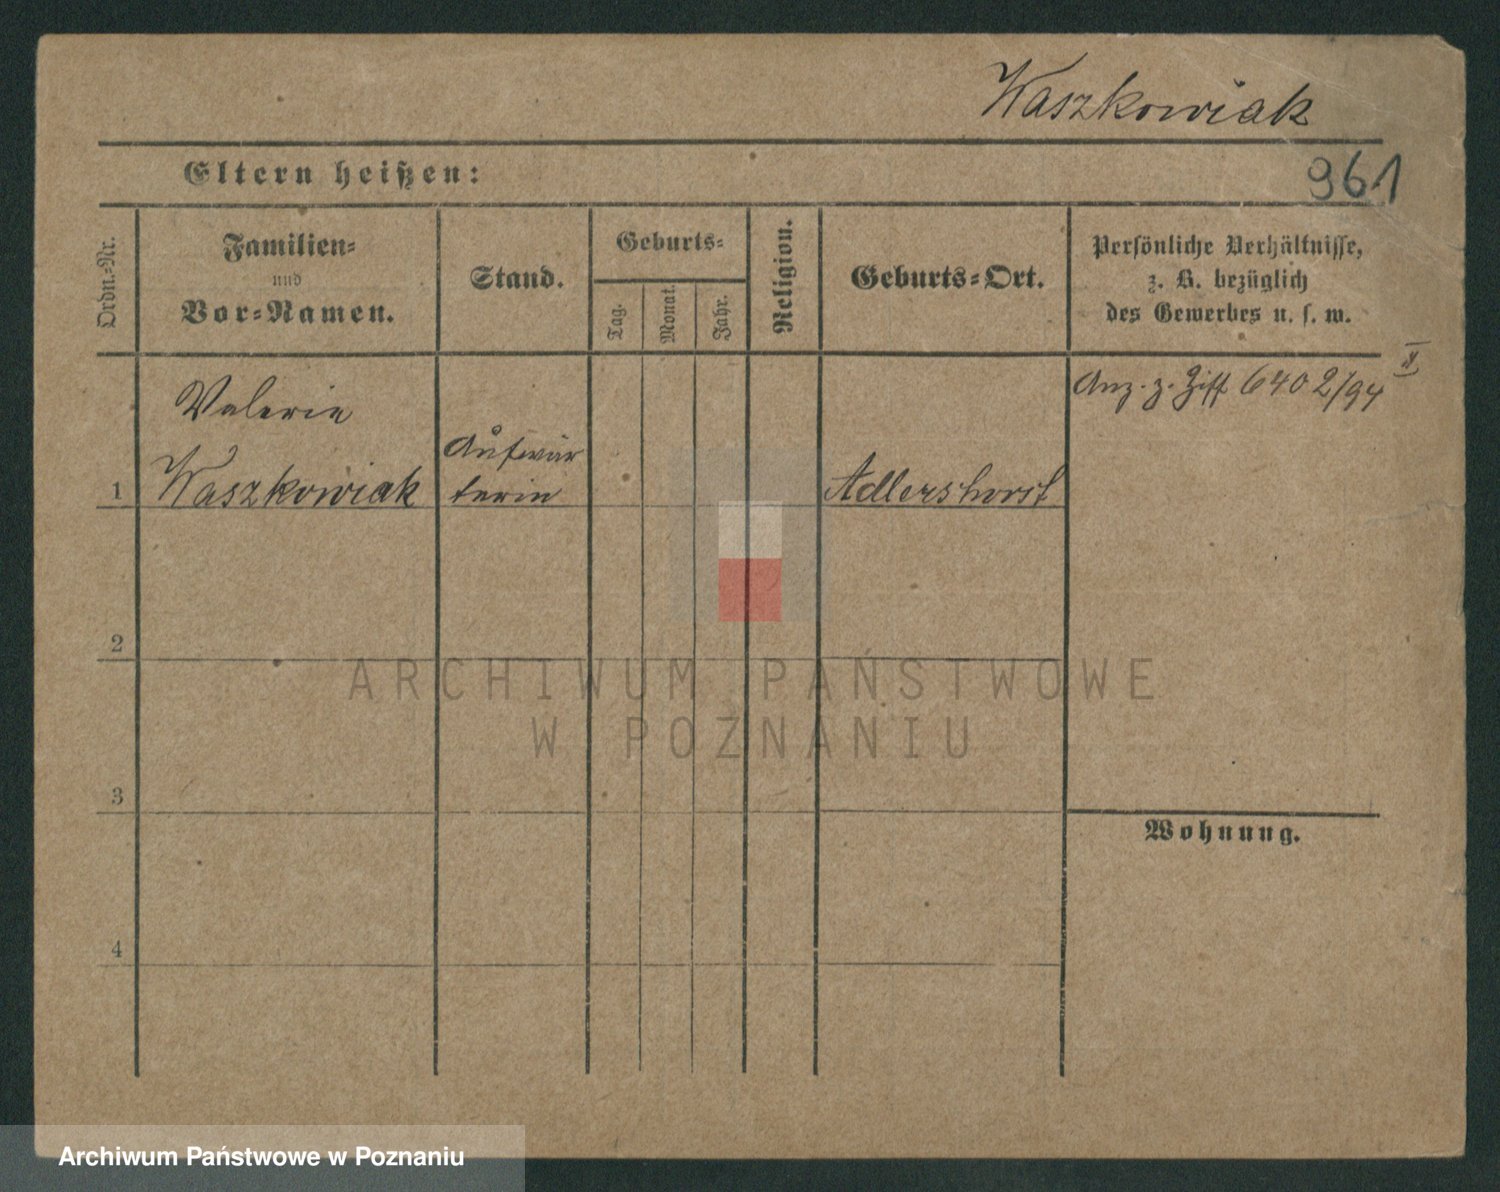 Waszkowiak
Eltern heißen:
961
Ordn.-Nr.
Familien-
und
Vor-Namen.
Stand.
Geburts-
Tag.
Monat.
Jahr.
Religion.
Geburts-Ort.
Persönliche Verhältnisse,
z. B. bezüglich
des Gewerbes u. s. w.
Anz. z. Ziff 6402/94 II
Valerie
Waszkowiak
Aufwär
terin
Adlershorst
1
2
ARCHIWUM PAŃSTWOWE
W POZNANIU
3
Wohnung.
4
Archiwum Państwowe w Poznaniu